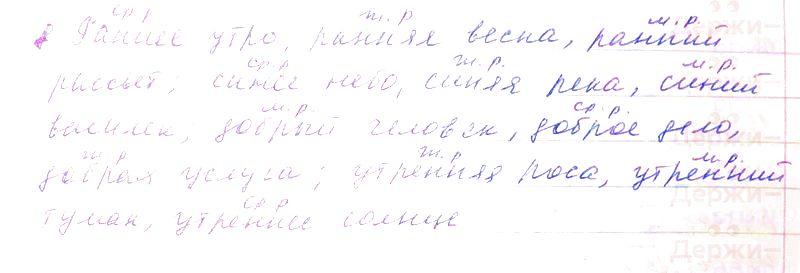 ср.р. ж.р. м.р.
Раннее утро, ранняя весна, ранний
ср.р. ж.р. м.р.
рассвет; синее небо, синяя река, синий
м.р. ср.р.
василек, добрый человек, доброе дело,
ж.р. ж.р. м.р.
добрая услуга; утренняя роса, утренний
ср.р.
туман, утреннее солнце
Держи-
Держи-
Держи-
Держи-